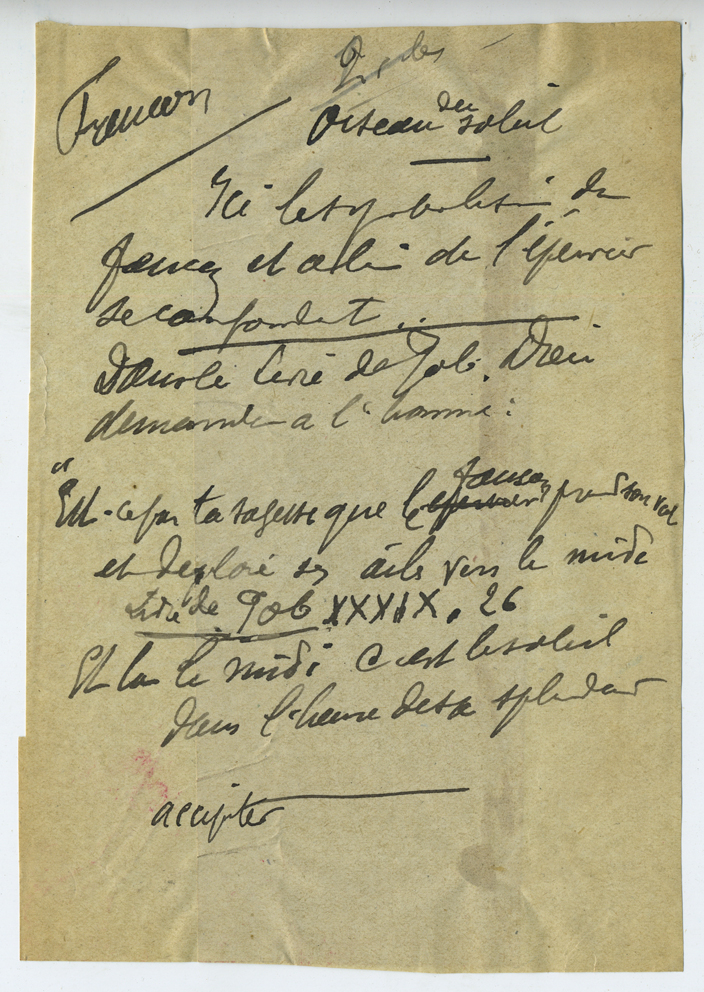 Faucon
Oiseau du soleil
Ici le symbolisme du
faucon et celui de l'épervier
se confondent...
Dans le Livre de Job, Dieu
demande à l'homme :
"Est-ce par ta sagesse que l'épervier faucon prend son vol
et déploie ses ailes vers le midi
Livre de Job XXXIX, 26
Et là le midi c'est le soleil
dans l'heure de sa splendeur
accipiter